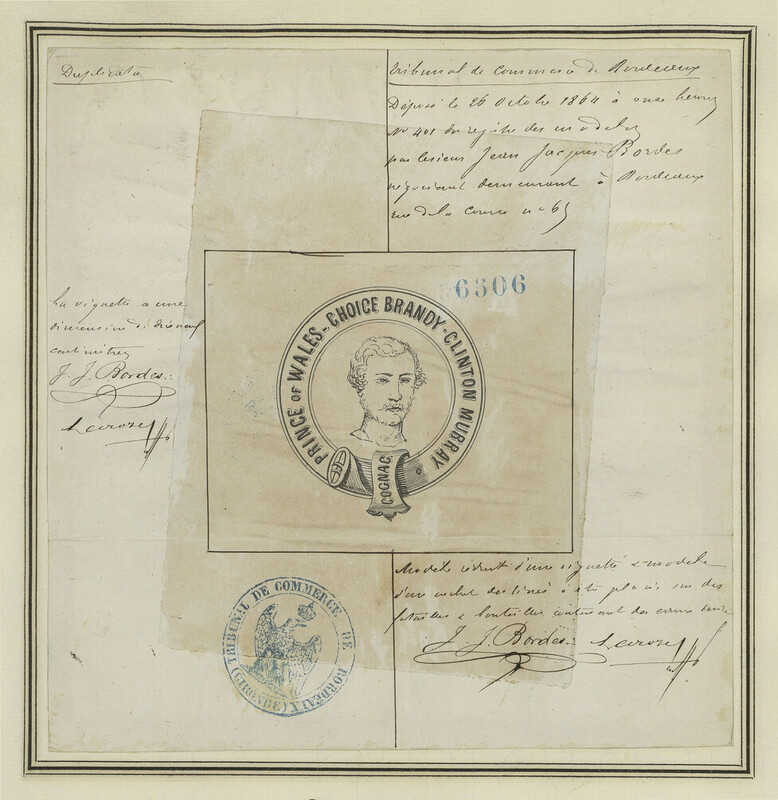 Duplicata
Tribunal de Commerce de Bordeaux
Déposé le 26 Octobre 1864 à onze heures
No 401 du registre des modeles
par le sieur Jean Jacques Bordes
négociant demeurant à Bordeaux
rue de la Course no 65
6306
PRINCE OF WALES-CHOICE BRANDY-CLINTON MURRAY
COGNAC
La vignette a une
dimension de
centimètres
J. J. Bordes
Laroze
Modele réduit d'une vignette & modele
d'un cachet destinés à être placés sur des
futailles & bouteilles contenant des
J. J. Bordes Laroze
TRIBUNAL DE COMMERCE DE BORDEAUX (GIRONDE)